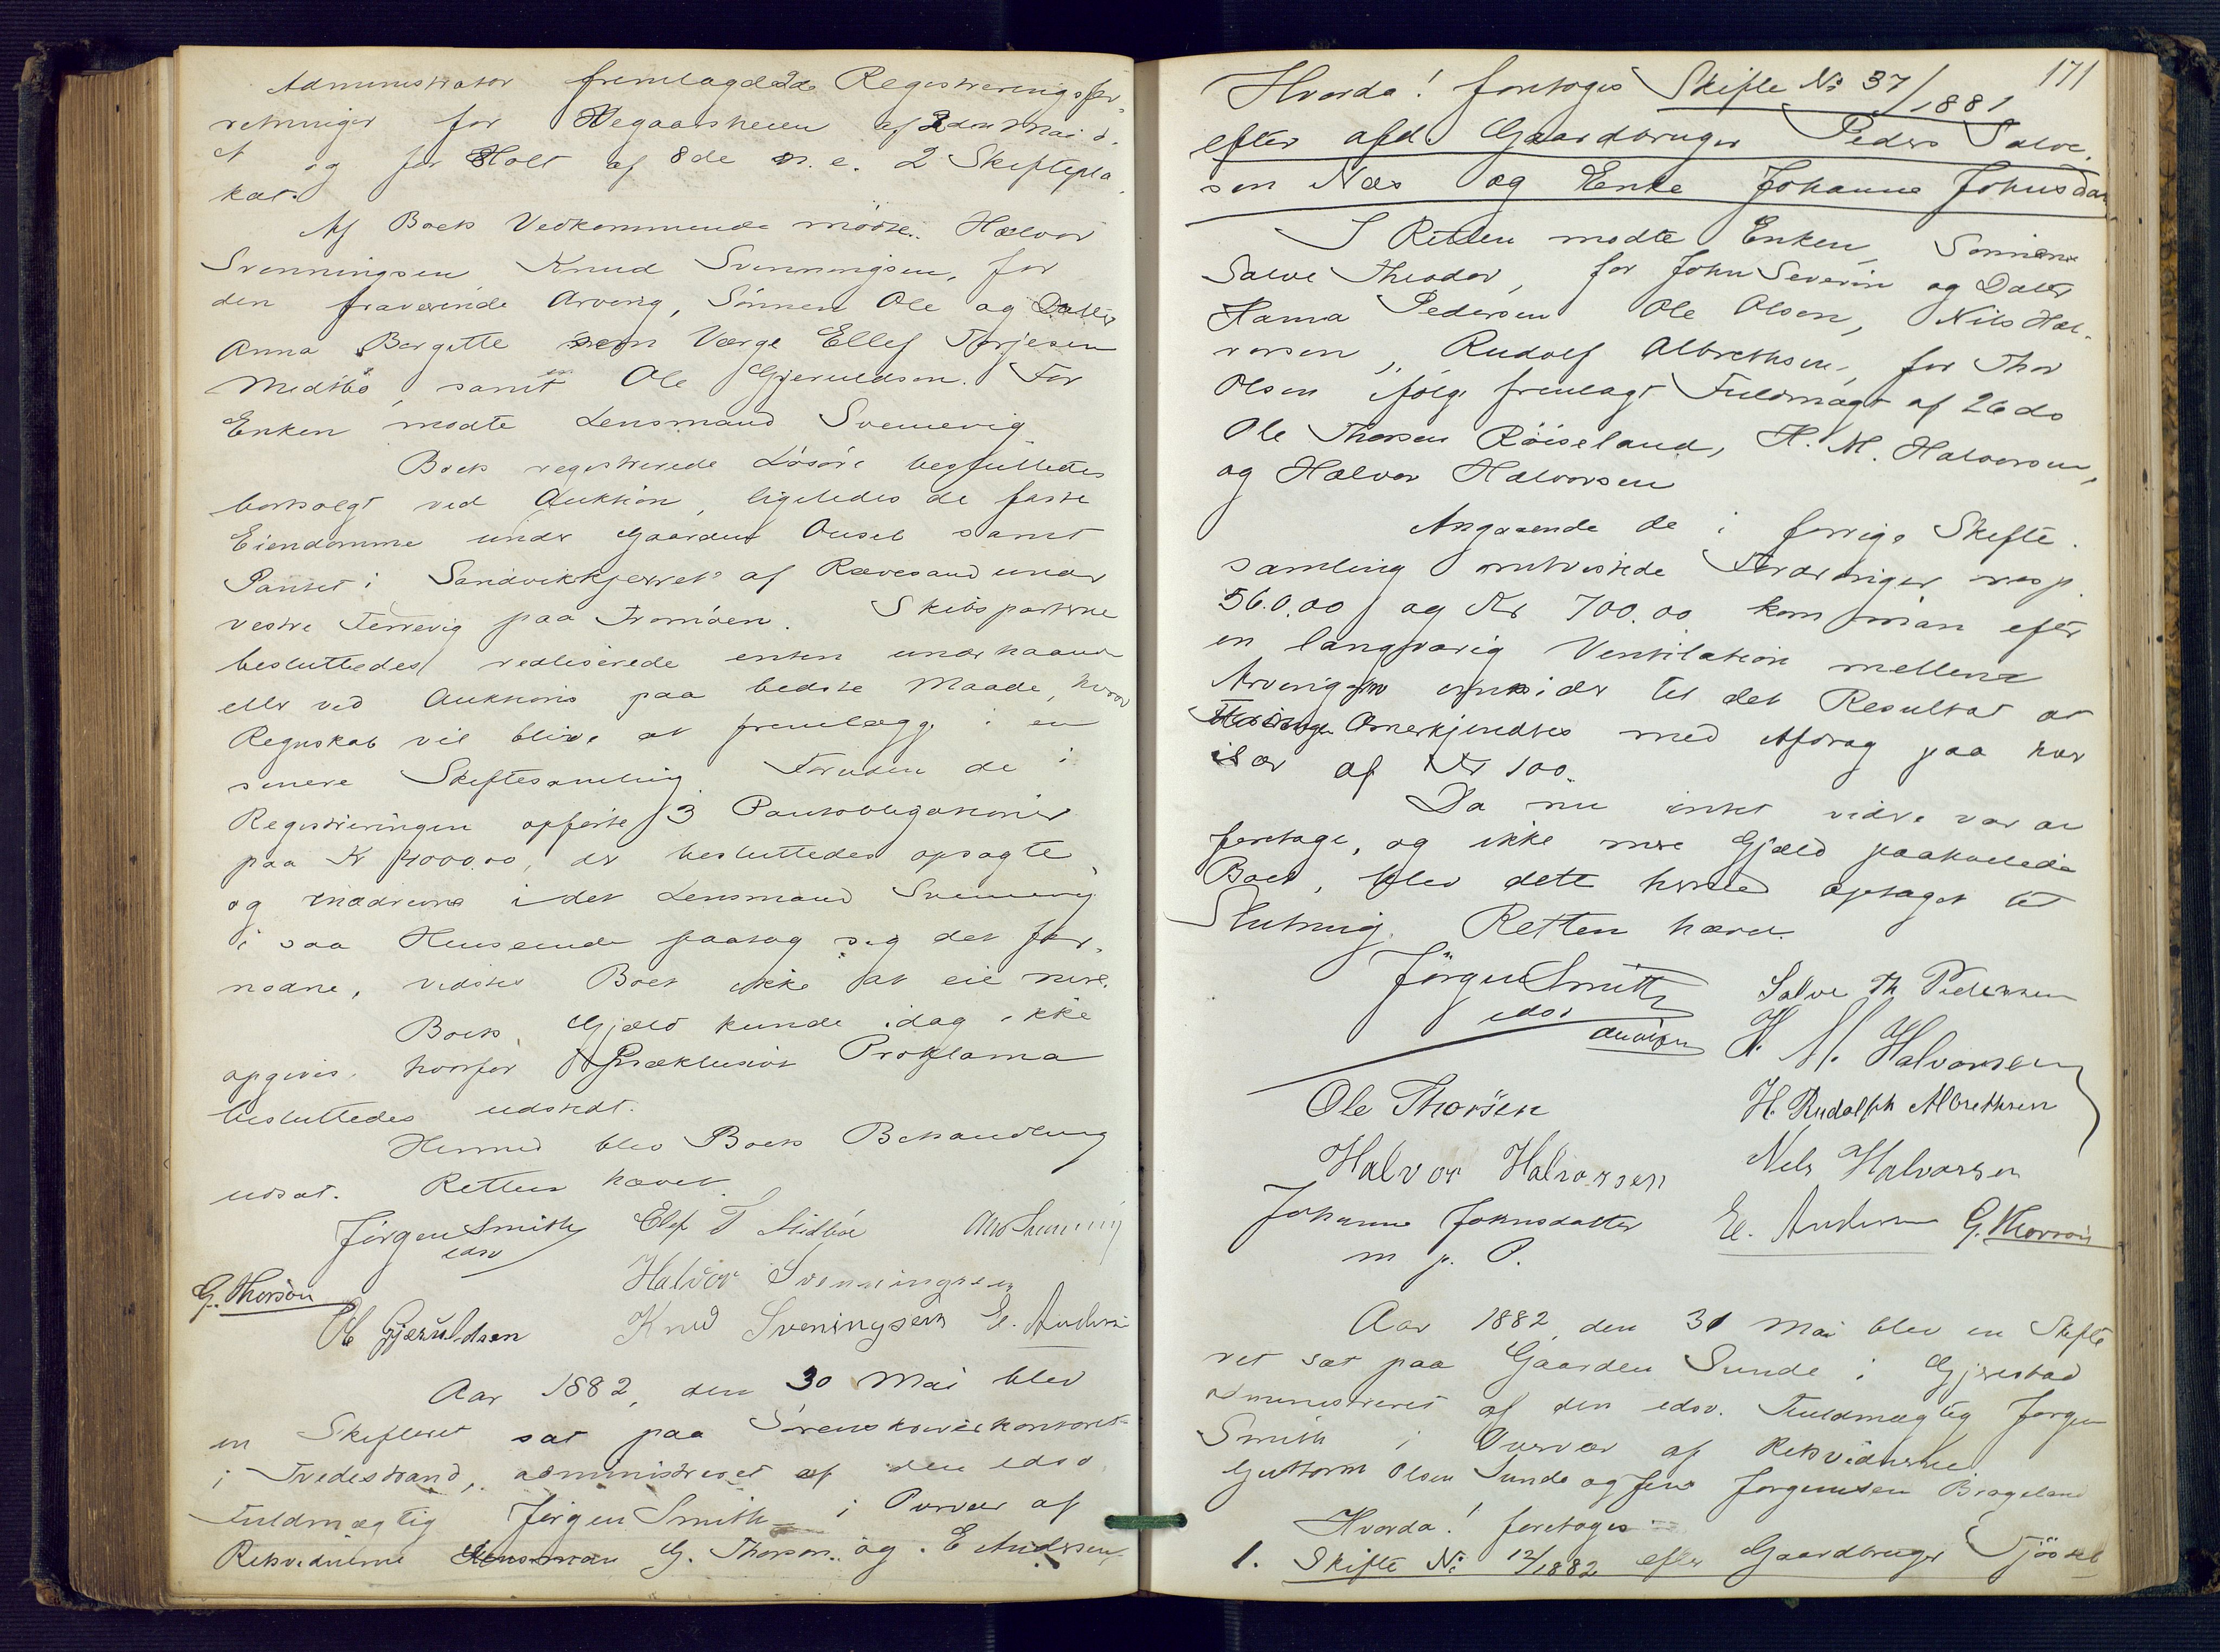 Administrator fremlagde 2de Registreringsfor-
retninger for Vegaarsheien af 2den Mai d.
A og for Holt af 8de s. e. 2 Skiftepla-
kat.
Af Boets Vedkommende mödte: Halvor
Svenningsen Knud Svenningsen, for
den fraværende Arving, Sönnen Ole og Datter
Anna Bergitte som Værge Ellef Terjesen
Midtbö, samt Ole Gjeruldsen. For
Enken mödte Lensmand Svenevig
Boets registrerede Lösöre besluttedes
bortsolgt ved Auktion, ligeledes de faste
Eiendomme under Gaarden Ousel samt
Pantet i Sandvikkjerret af Rævesand under
vestre Terrevig paa Tromöen. Skibsparterne
besluttedes realiserede enten underhaand
eller ved Auktions paa bedste Maade, hvorov
Regnskab vil blive at fremlægge i en
senere Skiftesamling Foruden de i
Registreringen opförte 3 Pantobligationer
paa Kr 4000.00, der besluttedes opsagte
og inddrevne idet Lensmand Svenevig
i saa Henseende paatog sig det for-
nödne, vidstes Boet ikke at eie mere.
Boets Gjæld kunde idag ikke
opgives. hvorfor Præklusivt Proklama
besluttedes udstedt.
Hermed blev Boets Behandling
udsat. Retten hævet
Jörgen Smith Elef T Midböe
edsv
G. Thorson Halvor Svenningsen
Ole Gjeruldsen Knud Sveningsen E. Andersen
Aar 1882, den 30 Mai blev
en Skifteret sat paa Sorenskriverkontoret
i Tvedestrand, administreret af den edsv
Fuldmægtig Jörgen Smith i Overvær af
Retsvidnerne G. Thorson og E Andersen
171
Hvorda! foretoges Skifte No 37/1881
efter afd. Gaardbruger Peder Salve-
sen Næs og Enke Johanne Johnsdatr
I Retten mödte Enken, Sönnerne
Salve Theodor, for John Severin og Datter
Hanna Pedersen Ole Olsen, Nils Hal-
vorsen, Rudolf Albrethsen, for Thor
Olsen ifölge fremlagt Fuldmagt af 26 ds
Ole Thorsen Röiseland, H. M. Halvorsen,
og Halvor Halvorsen
Angaaende de i forrige Skifte-
samling omtvistede Fordringer resp.
560.00 og Kr 700.00 kom man efter
en langvarig Ventilation mellem
Arvingerne omsider til det Resultat at
Fordringen Anerkjendtes med Afdrag paa hver
især af Kr 100.
Da nu intet videre var at
foretage, og ikke mere Gjæld paahvilede
Boet, blev dette hermed optaget til
Slutning. Retten hævet.
Jörgen Smith Salve Th Pedersen
edsv
H. M. Halvorsen
Ole Thorsen H. Rudolph Albrethsen
Halvor Halvorsen Nels Halvorsen
Johanne Johnsdatter E. Andersen G. Thorson
m p. P.
Aar 1882, den 31 Mai blev en Skifte
ret sat paa Gaarden Sunde i Gjerestad
administreret af den edsv. Fuldmægtig Jörgen
Smith i Overvær af Retsvidnerne
Guttorm Olsen Sunde og Jens Jörgensen Brageland
Hvorda! foretoges
1. Skifte No 12/1882 efter Gaardbruger